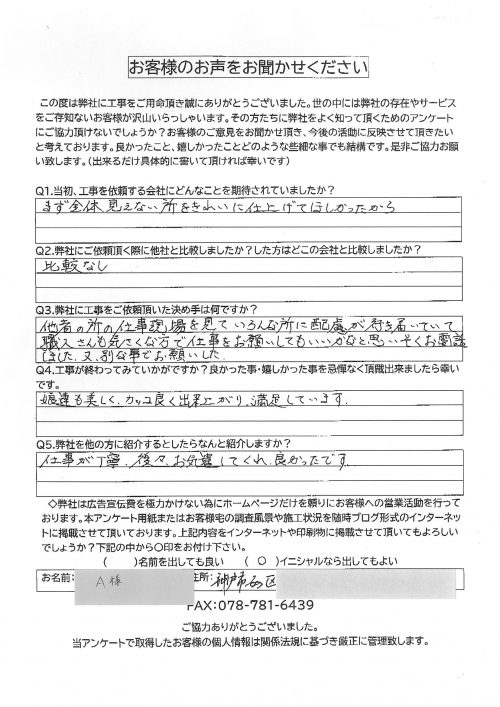 お客様のお声をお聞かせください
この度は弊社に工事をご用命頂き誠にありがとうございました。世の中には弊社の存在やサービス
をご存知ないお客様が沢山いらっしゃいます。その方たちに弊社をよく知って頂くためのアンケート
にご協力頂けないでしょうか？お客様のご意見をお聞かせ頂き、今後の活動に反映させて頂きたい
と考えております。良かったこと、嬉しかったことどのような些細な事でも結構です。是非ご協力お願
い致します。（出来るだけ具体的に書いて頂ければ幸いです）
Q1.当初、工事を依頼する会社にどんなことを期待されていましたか？
まず全体、見えない所をきれいに仕上げてほしかったから
Q2.弊社にご依頼頂く際に他社と比較しましたか？した方はどこの会社と比較しましたか？
比較なし
Q3.弊社に工事をご依頼頂いた決め手は何ですか？
他者の所の仕事現場を見ていろんな所に配慮が行き届いていて
職人さんも気さくな方で仕事をお願いしてもいいかなと思いそくお電話
しました。又、別な事でお願いした
Q4.工事が終わってみていかがですか？良かった事・嬉しかった事を忌憚なく頂戴出来ましたら幸い
です。
娘達も美しく、カッコ良く出来上がり、満足しています.
Q5.弊社を他の方に紹介するとしたらなんと紹介しますか？
仕事が丁寧、後々、お気遣してくれ、良かったです
◇弊社は広告宣伝費を極力かけない為にホームページだけを頼りにお客様への営業活動を行って
おります。本アンケート用紙またはお客様宅の調査風景や施工状況を随時ブログ形式のインターネッ
トに掲載させて頂いております。上記内容をインターネットや印刷物に掲載させて頂いてもよろしい
でしょうか？下記の中から〇印をお付け下さい。
（　　）名前を出しても良い　（ ○ ）イニシャルなら出してもよい
お名前： A様 住所： 神戸市西区
FAX:078-781-6439
ご協力ありがとうございました。
当アンケートで取得したお客様の個人情報は関係法規に基づき厳正に管理致します。